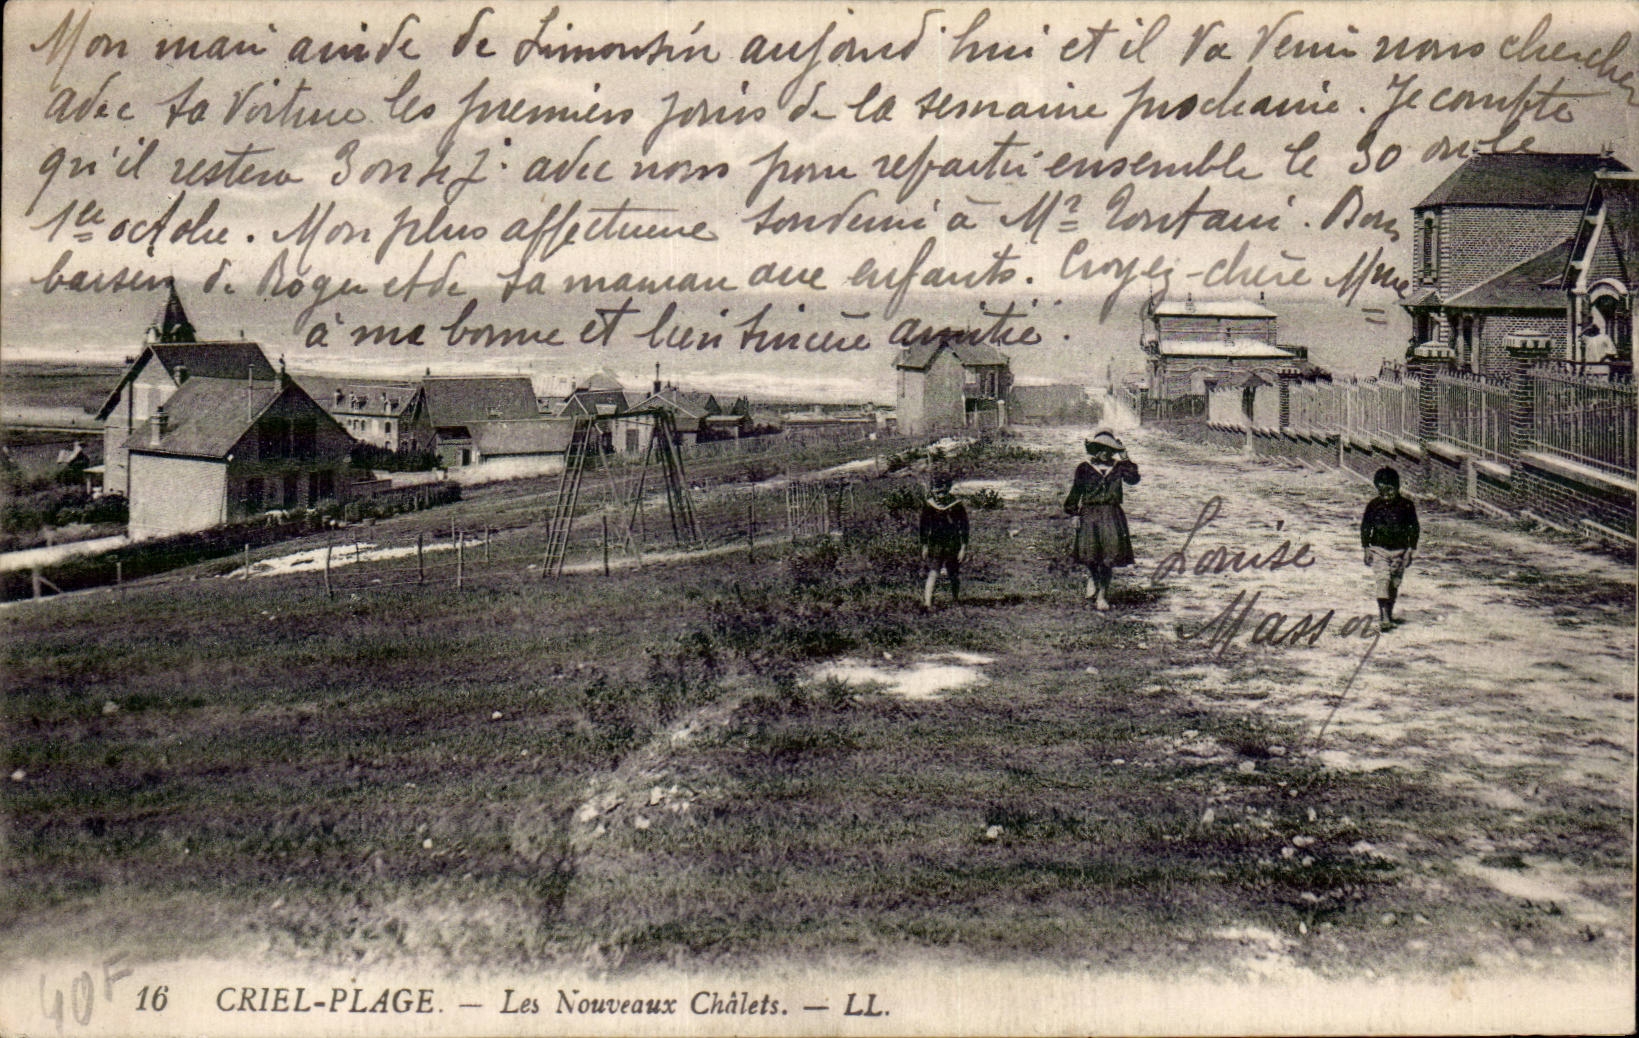 Mon mari arrive de Limousin aujourd'hui et il va venir nous chercher
avec sa voiture les premiers jours de la semaine prochaine. Je compte
qu'il restera 3 ou 4 j. avec nous pour repartir ensemble le 30 ou le
1er octobre. Mon plus affectueux souvenir à Mr. Bons
baisers de Roger et de sa maman aux enfants. Croyez-chère Mme
à ma bonne et bien sincère amitié.
Louise
Masson
40F
16 CRIEL-PLAGE. — Les Nouveaux Châlets. — LL.